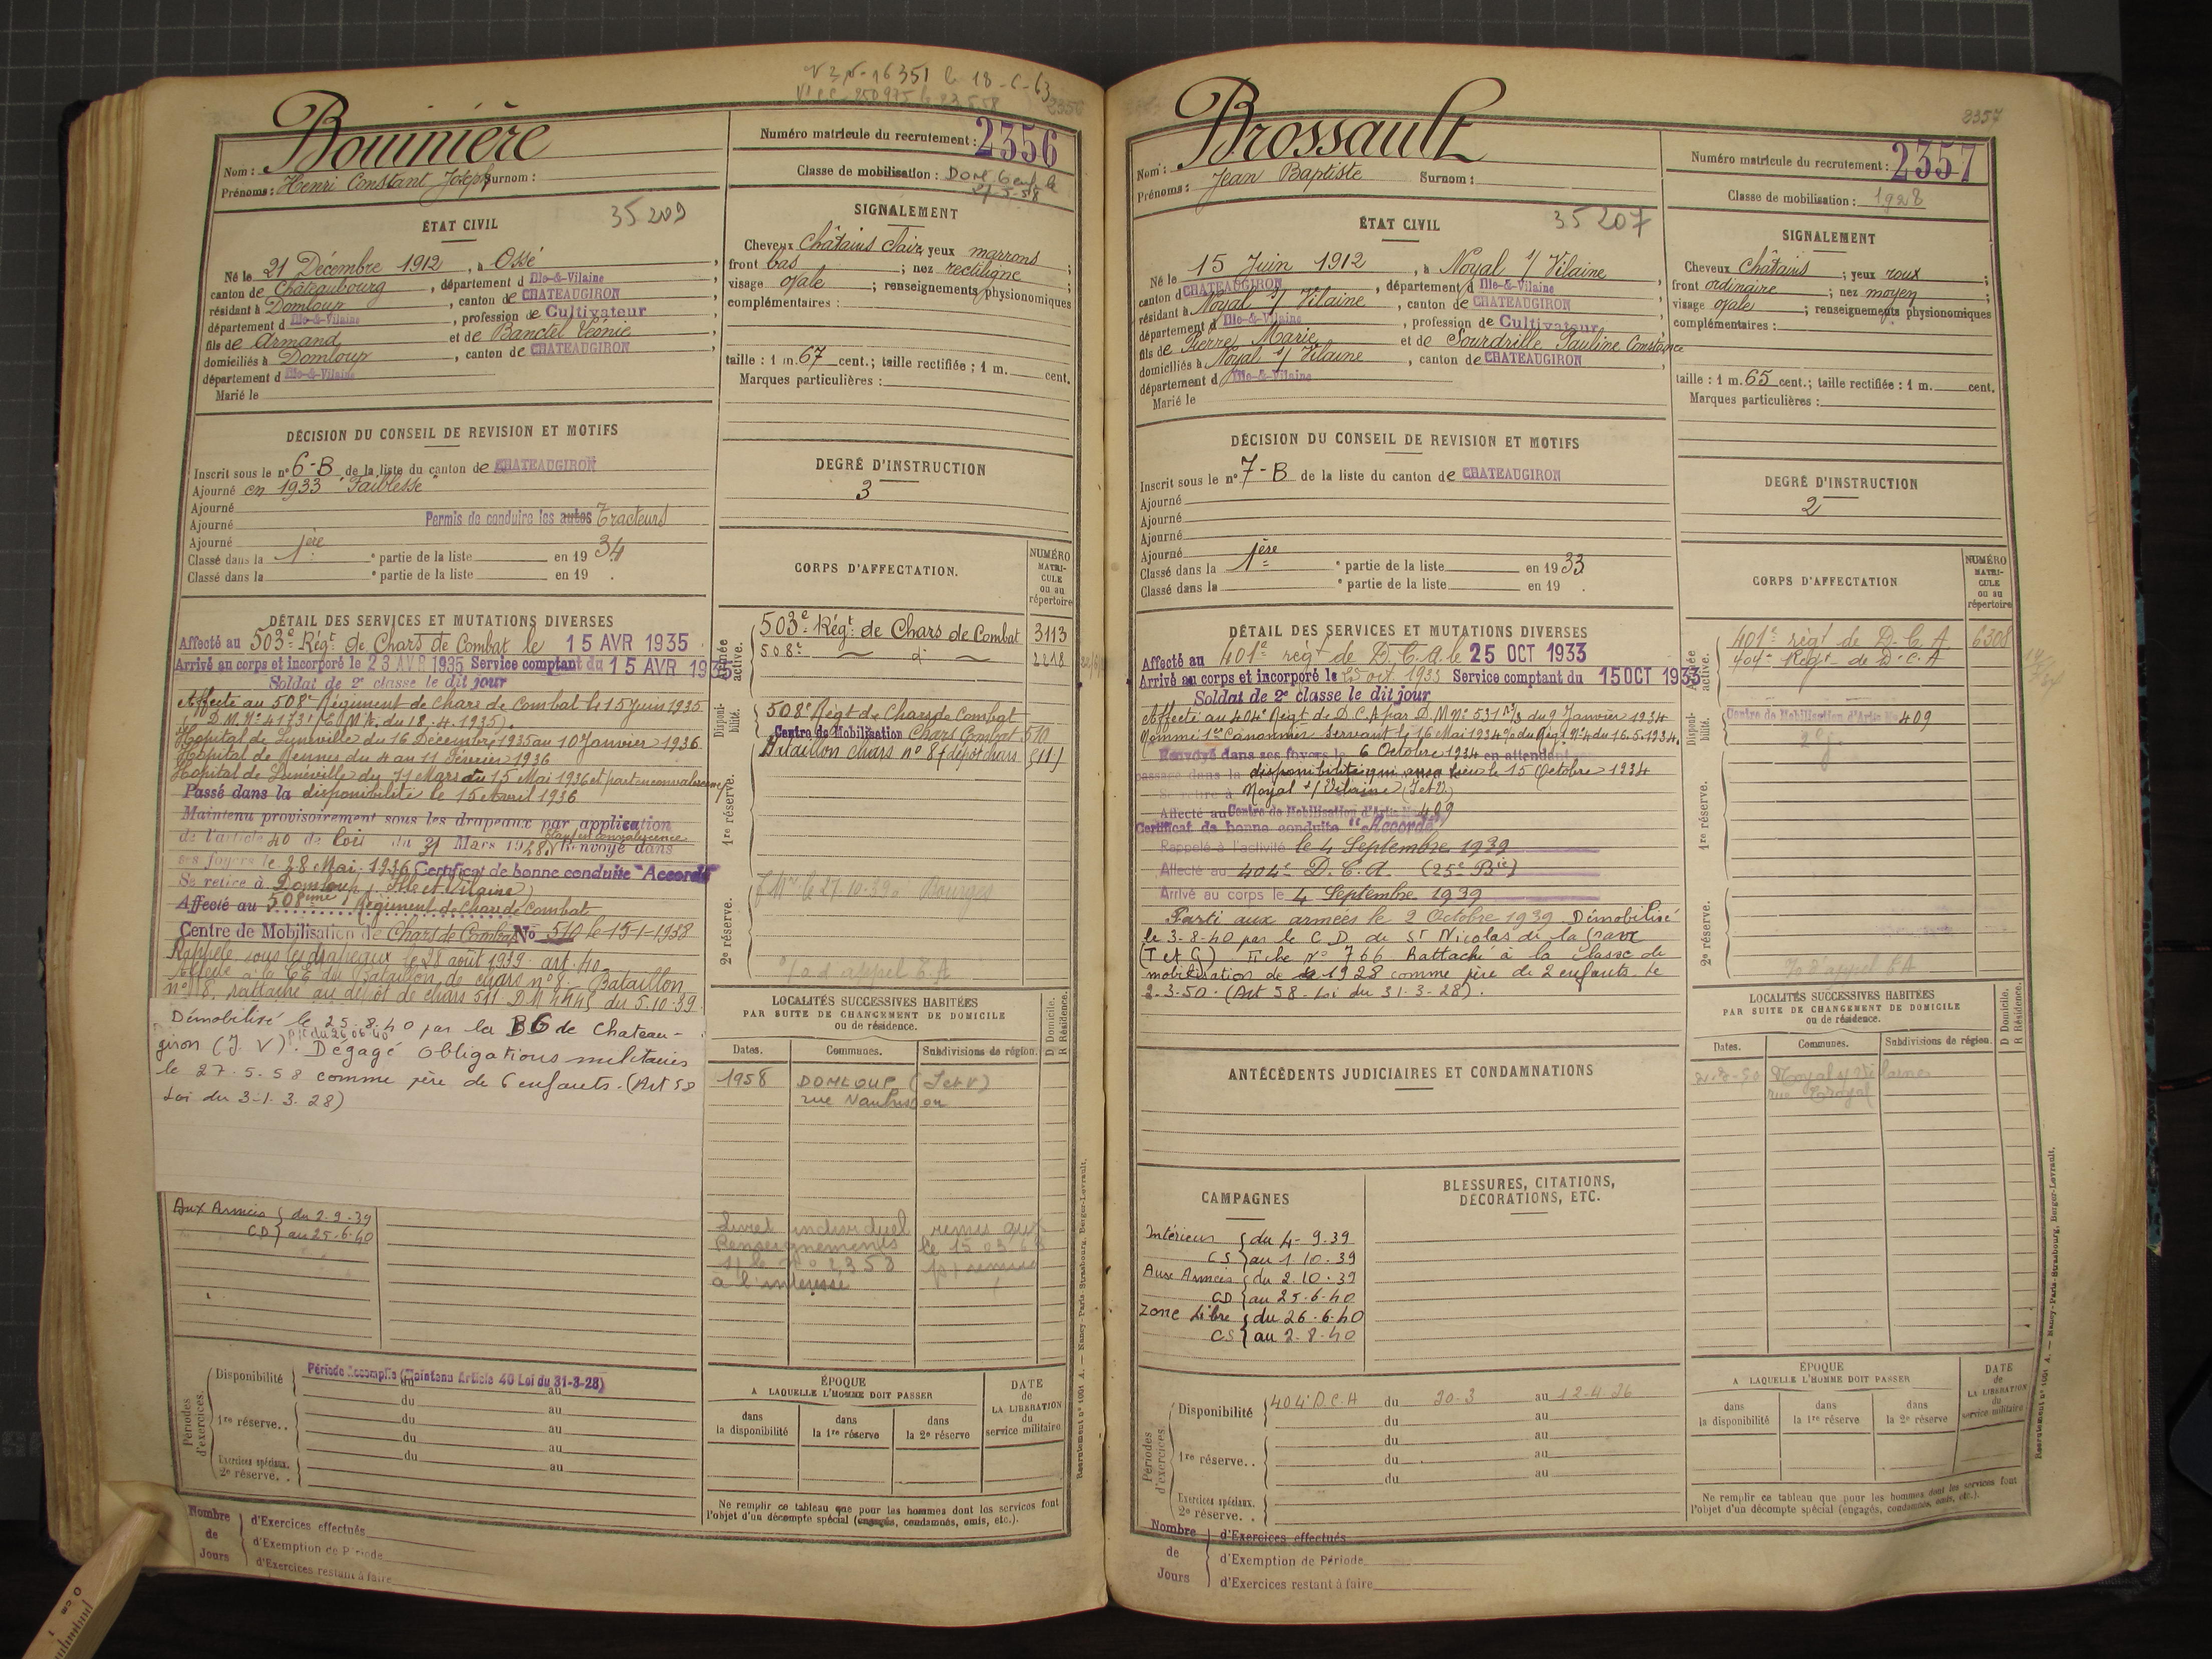 18-6-63
2356
Nom : Bouinière
Prénoms : Henri Constant Joseph Surnom :
Numéro matricule du recrutement : 2356
Classe de mobilisation :
ÉTAT CIVIL
35209
Né le 21 Décembre 1912, à Ossé,
canton de Châteaubourg, département d Ille-&-Vilaine
résidant à Domloup, canton de CHATEAUGIRON,
département d Ille-&-Vilaine, profession de Cultivateur
fils de Armand et de Banctel Léonie
domiciliés à Domloup, canton de CHATEAUGIRON,
département d Ille-&-Vilaine
Marié le
SIGNALEMENT
Cheveux Châtains clairs yeux marrons ;
front bas ; nez rectiligne ;
visage ovale ; renseignements physionomiques
complémentaires :
taille : 1 m. 67 cent.; taille rectifiée : 1 m. cent.
Marques particulières :
DÉCISION DU CONSEIL DE REVISION ET MOTIFS
Inscrit sous le n° 6-B de la liste du canton de CHATEAUGIRON
Ajourné en 1933 "Faiblesse"
Ajourné
Ajourné Permis de conduire les autos Tracteurs
Ajourné
Classé dans la 1ère partie de la liste en 19 34
Classé dans la partie de la liste en 19 .
DEGRÉ D'INSTRUCTION
3
DÉTAIL DES SERVICES ET MUTATIONS DIVERSES
Affecté au 503e Régt de Chars de Combat le 15 AVR 1935
Arrivé au corps et incorporé le 23 AVR 1935 Service comptant du 15 AVR 1935
Soldat de 2e classe le dit jour
Affecté au 508e Régiment de Chars de Combat le 15 Juin 1935
Hopital de Lunéville du 16 Décembre 1935 au 10 Janvier 1936
Hopital de Rennes du 4 au 11 Février 1936
Hopital de Lunéville du 11 Mars au 15 Mai 1936 et part en convalescence
Passé dans la disponibilité le 15 Avril 1936
Maintenu provisoirement sous les drapeaux par application
de l'article 40 de Loi du 31 Mars 1928 étant en convalescence Renvoyé dans
ses foyers le 28 Mai 1936 Certificat de bonne conduite "Accordé"
Se retire à Domloup, Ille et Vilaine)
Affecté au 508ème Régiment de Chars de Combat
Centre de Mobilisation de Chars de Combat No 510 le 15-1-1938
Rappelé sous les drapeaux le 28 août 1939. art. 40
Affecté à la CE du Bataillon de chars n° 8. Bataillon
n° 8, rattaché au dépôt de chars 511 du 5.10.39.
Démobilisé le 25.8.40 par la BG de Chateau-
giron (I. V). Dégagé obligations militaires
le 27.5.58 comme père de 6 enfants. (Art 58
Loi du 31.3.28)
CORPS D'AFFECTATION.
NUMÉRO MATRICULE ou au répertoire
Armée active.
503e Régt de Chars de Combat 3113
508e d° 2218
Disponibilité.
508e Régt de Chars de Combat
Centre de Mobilisation Chars Combat 510
Bataillon chars n° 8 dépôt chars 511
1re réserve.
2e réserve.
le 27.10.39 Bourges
LOCALITÉS SUCCESSIVES HABITÉES
PAR SUITE DE CHANGEMENT DE DOMICILE
ou de résidence.
D Domicile. R Résidence.
Dates. Communes. Subdivisions de région.
1958 DOMLOUP (I et V)
Livret individuel remis aux
Renseignements
à l'intéressé
Aux Armées { du 2.9.39
CD } au 25.6.40
Périodes d'exercices.
Disponibilité Période accomplie (Maintenu Article 40 Loi du 31-3-28)
du au
1re réserve..
Exercices spéciaux.
2e réserve. .
ÉPOQUE
A LAQUELLE L'HOMME DOIT PASSER
dans la disponibilité dans la 1re réserve dans la 2e réserve
DATE de LA LIBÉRATION du service militaire
Ne remplir ce tableau que pour les hommes dont les services font
l'objet d'un décompte spécial (engagés, condamnés, omis, etc.).
Nombre de Jours
d'Exercices effectués
d'Exemption de Période
d'Exercices restant à faire
Recrutement n° 1001 A. — Nancy-Paris-Strasbourg, Berger-Levrault.
2357
Nom : Brossault
Prénoms : Jean Baptiste Surnom :
Numéro matricule du recrutement : 2357
Classe de mobilisation : 1928
ÉTAT CIVIL
35207
Né le 15 Juin 1912, à Noyal s/ Vilaine,
canton d CHATEAUGIRON, département d Ille-&-Vilaine
résidant à Noyal s/ Vilaine, canton de CHATEAUGIRON,
département d Ille-&-Vilaine, profession de Cultivateur
fils de Pierre Marie et de Sourdrille Pauline Constance
domiciliés à Noyal s/ Vilaine, canton de CHATEAUGIRON,
département d Ille-&-Vilaine
Marié le
SIGNALEMENT
Cheveux Châtains ; yeux roux ;
front ordinaire ; nez moyen ;
visage ovale ; renseignements physionomiques
complémentaires :
taille : 1 m. 65 cent.; taille rectifiée : 1 m. cent.
Marques particulières :
DÉCISION DU CONSEIL DE REVISION ET MOTIFS
Inscrit sous le n° 7-B de la liste du canton de CHATEAUGIRON
Ajourné
Ajourné
Ajourné
Ajourné
Classé dans la 1ère partie de la liste en 19 33
Classé dans la partie de la liste en 19 .
DEGRÉ D'INSTRUCTION
2
DÉTAIL DES SERVICES ET MUTATIONS DIVERSES
Affecté au 401e régt de D.C.A. le 25 OCT 1933
Arrivé au corps et incorporé le 25 oct. 1933 Service comptant du 15 OCT 1933
Soldat de 2e classe le dit jour
Affecté au 404e Régt de D.C.A par D.M. n° 531 du 9 Janvier 1934
Nommé 1er Canonnier Servant le 16 Mai 1934 du Régt n° 4 du 16.5.1934.
Renvoyé dans ses foyers le 6 Octobre 1934 en attendant son
passage dans la disponibilité qui aura lieu le 15 Octobre 1934
Se retire à Noyal s/ Vilaine (I et V)
Affecté au Centre de Mobilisation d'Artie No 409
Certificat de bonne conduite "Accordé"
Rappelé à l'activité le 4 Septembre 1939
Affecté au 404e D.C.A. (25e Bie)
Arrivé au corps le 4 Septembre 1939
Parti aux armées le 2 Octobre 1939. Démobilisé
le 3-8-40 par le C.D. de St Nicolas de la Grave
(T et G) Fiche N° 766 Rattaché à la classe de
mobilisation de 1928 comme père de 2 enfants le
2-3-50. (Art 58. Loi du 31-3-28).
CORPS D'AFFECTATION
NUMÉRO MATRICULE ou au répertoire
Armée active.
401e régt de D.C.A 6308
404e Régt de D.C.A
Disponibilité.
Centre de Mobilisation d'Artie No 409
1re réserve.
2e réserve.
LOCALITÉS SUCCESSIVES HABITÉES
PAR SUITE DE CHANGEMENT DE DOMICILE
ou de résidence.
D Domicile. R Résidence.
Dates. Communes. Subdivisions de région.
Noyal s/ Vilaine
ANTÉCÉDENTS JUDICIAIRES ET CONDAMNATIONS
CAMPAGNES
BLESSURES, CITATIONS, DÉCORATIONS, ETC.
Intérieur { du 4-9.39
CS } au 1.10.39
Aux Armées { du 2.10.39
CD } au 25.6.40
Zone Libre { du 26.6.40
CS } au 2.8.40
Périodes d'exercices.
Disponibilité 404e D.C.A du 20-3 au 12-4-36
du au
1re réserve..
Exercices spéciaux.
2e réserve. .
ÉPOQUE
A LAQUELLE L'HOMME DOIT PASSER
dans la disponibilité dans la 1re réserve dans la 2e réserve
DATE de LA LIBÉRATION du service militaire
Ne remplir ce tableau que pour les hommes dont les services font
l'objet d'un décompte spécial (engagés, condamnés, omis, etc.).
Nombre de Jours
d'Exercices effectués
d'Exemption de Période
d'Exercices restant à faire
Recrutement n° 1001 A. — Nancy-Paris-Strasbourg, Berger-Levrault.